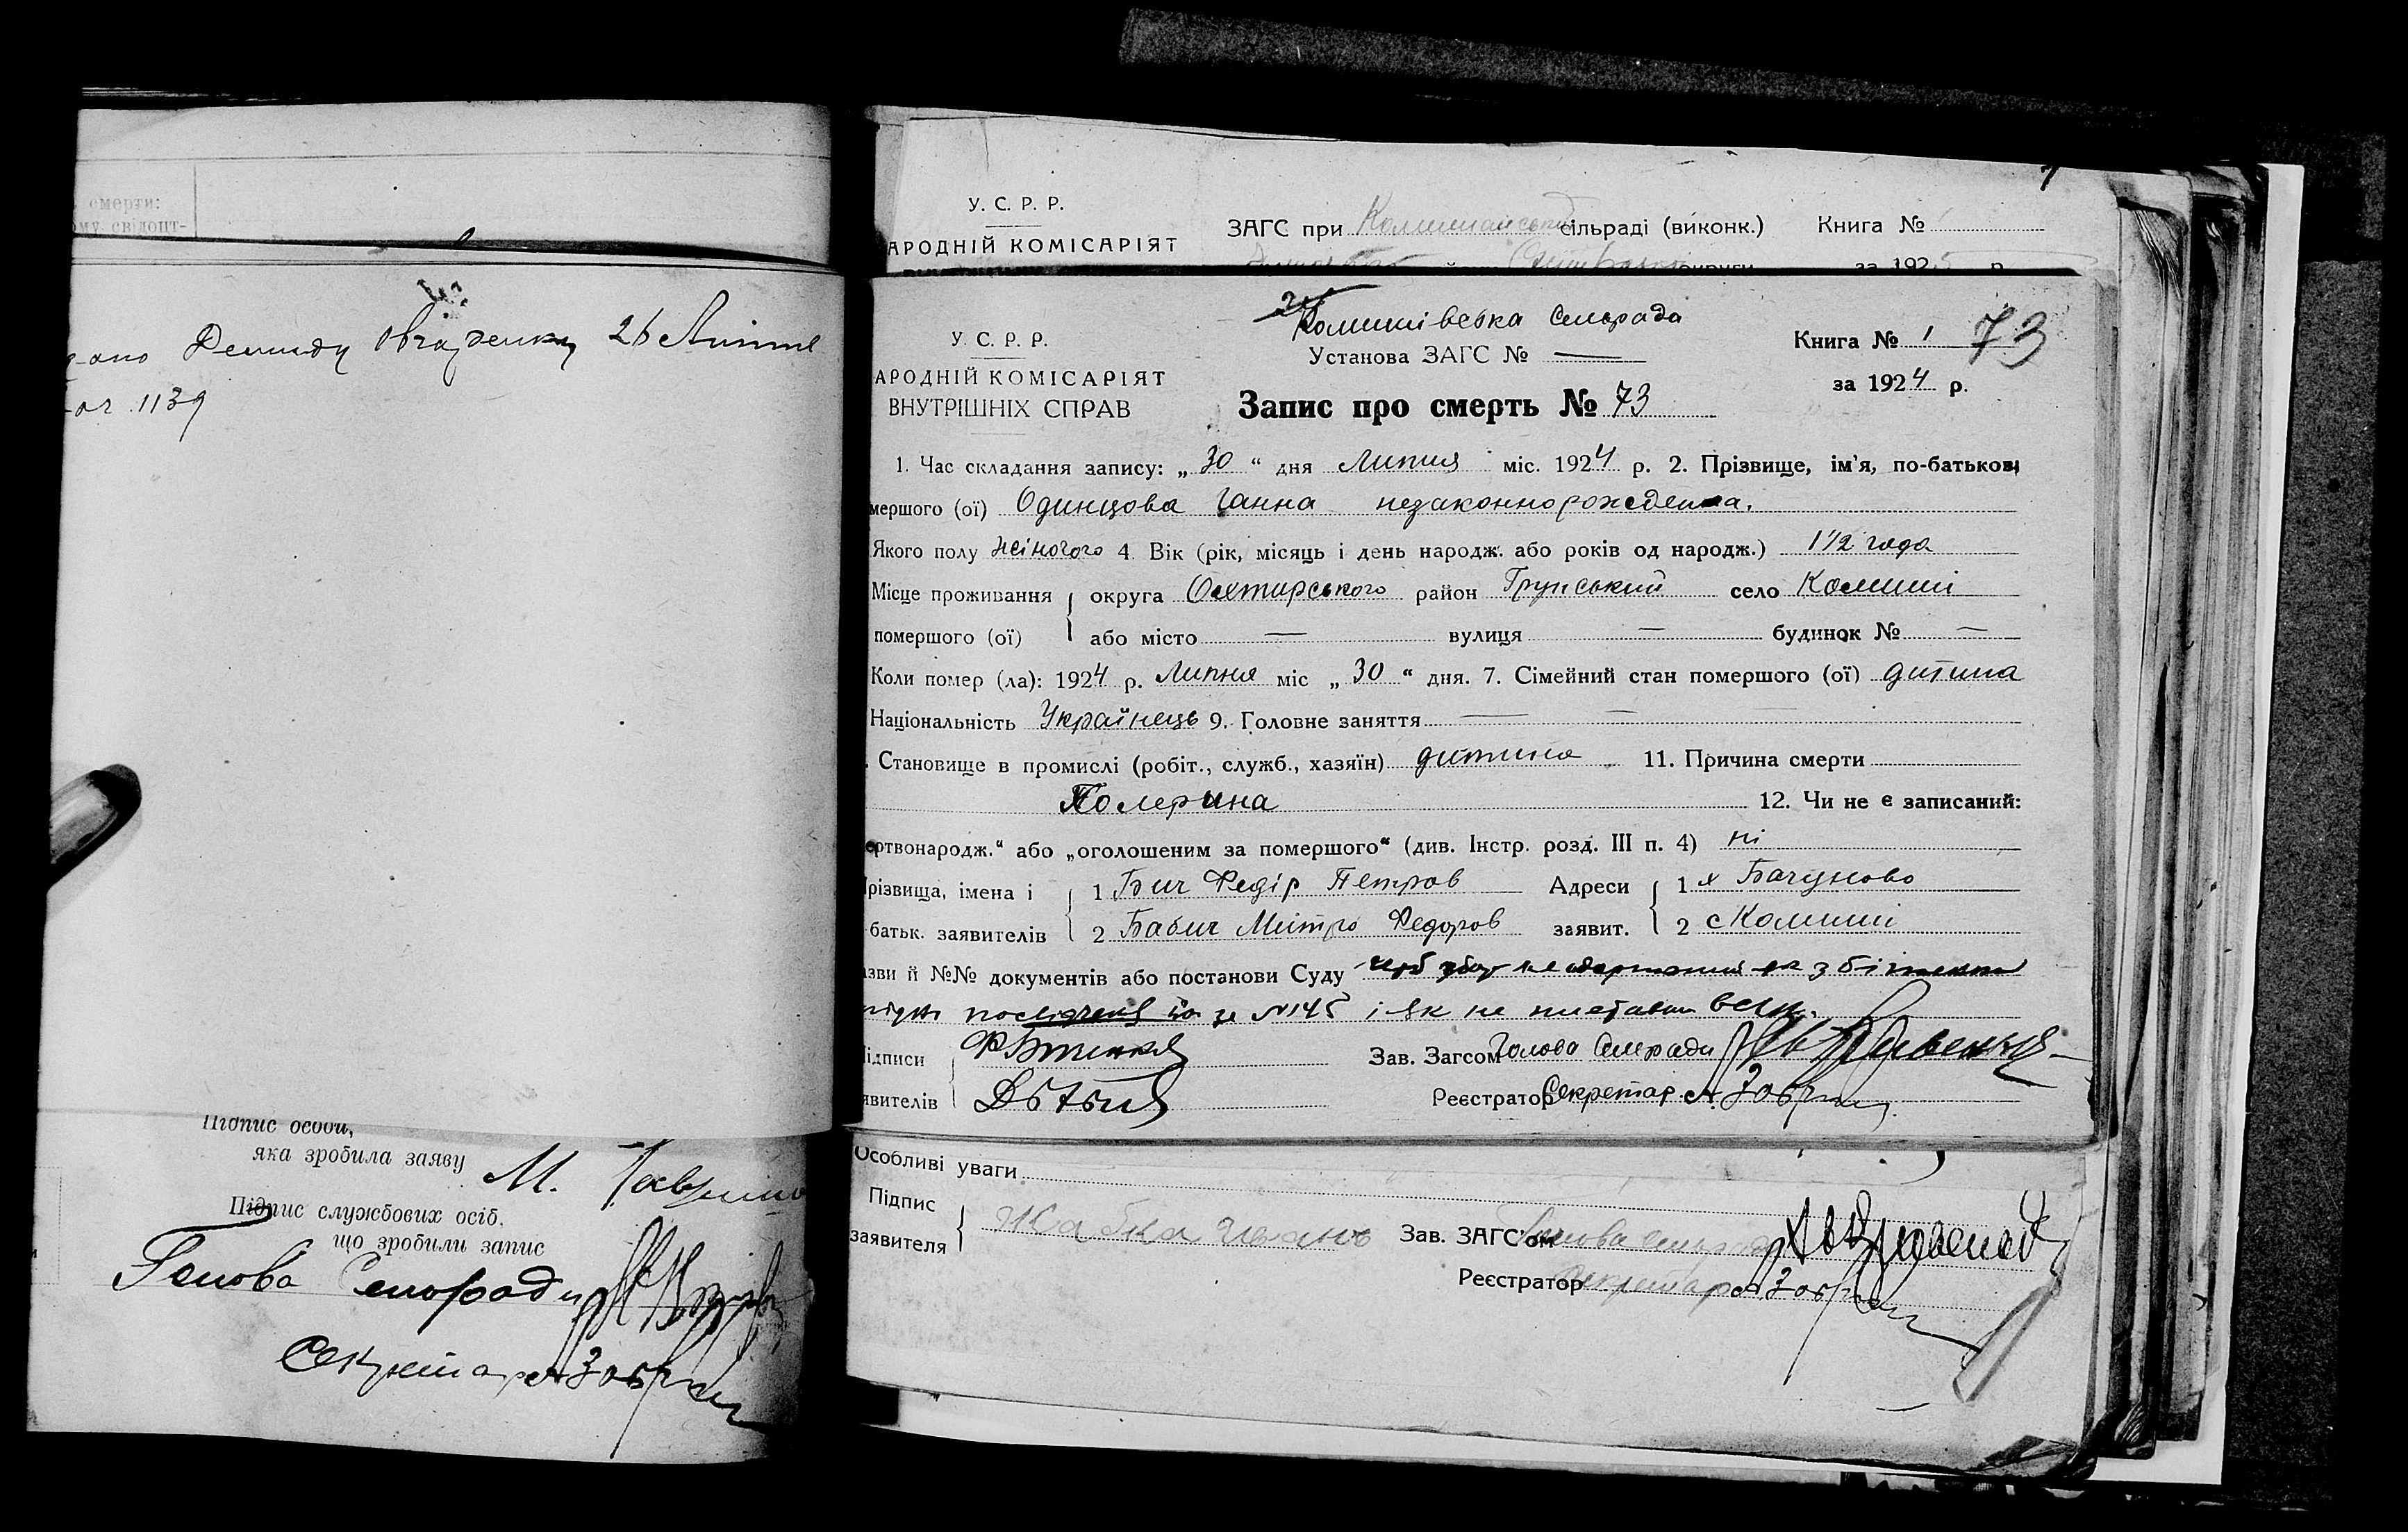 смерти:
ому свідопт-
26 Липня
1139
Підпис особи,
яка зробила заяву М.
Підпис службових осіб,
що зробили запис
Голова Сельради
Секретар А Зов
У. С. Р. Р.
АРОДНІЙ КОМІСАРІЯТ
ЗАГС при Комишанської сільраді (виконк.) Книга №
округи за 1925 р.
Комишівська Сельрада
У. С. Р. Р.
АРОДНІЙ КОМІСАРІЯТ
ВНУТРІШНІХ СПРАВ
Установа ЗАГС № —
Книга № 1 73
за 1924 р.
Запис про смерть № 73
1. Час складання запису: „ 30 “ дня Липня міс. 1924 р. 2. Прізвище, ім'я, по-батькові
мершого (ої) Одинцова Ганна незаконнорожденна.
Якого полу жіночого 4. Вік (рік, місяць і день народж. або років од народж.) 1 1/2 года
Місце проживання округа Охтирського район Грунський село Комиші
помершого (ої) або місто — вулиця — будинок № —
Коли помер (ла): 1924 р. Липня міс „ 30 “ дня. 7. Сімейний стан помершого (ої) дитина
Національність Українець 9. Головне заняття — —
. Становище в промислі (робіт., служб., хазяїн) дитина 11. Причина смерти
Холерина 12. Чи не є записаний:
ертвонародж.“ або „оголошеним за помершого“ (див. Інстр. розд. III п. 4) ні
різвища, імена і 1 Бич Федір Петров Адреси 1 х Бачуново
батьк. заявителів 2 Бабич Митро Федоров заявит. 2 с Комиші
азви й №№ документів або постанови Суду
за №145 і як не
ідписи
явителів
Зав. Загсом Голова Сельради
Реєстратор Секретар А. Зов
Особливі уваги
Підпис
заявителя Жабка Иванъ
Зав. ЗАГС'ом Голова сельради
Реєстратор Секретар А Зов